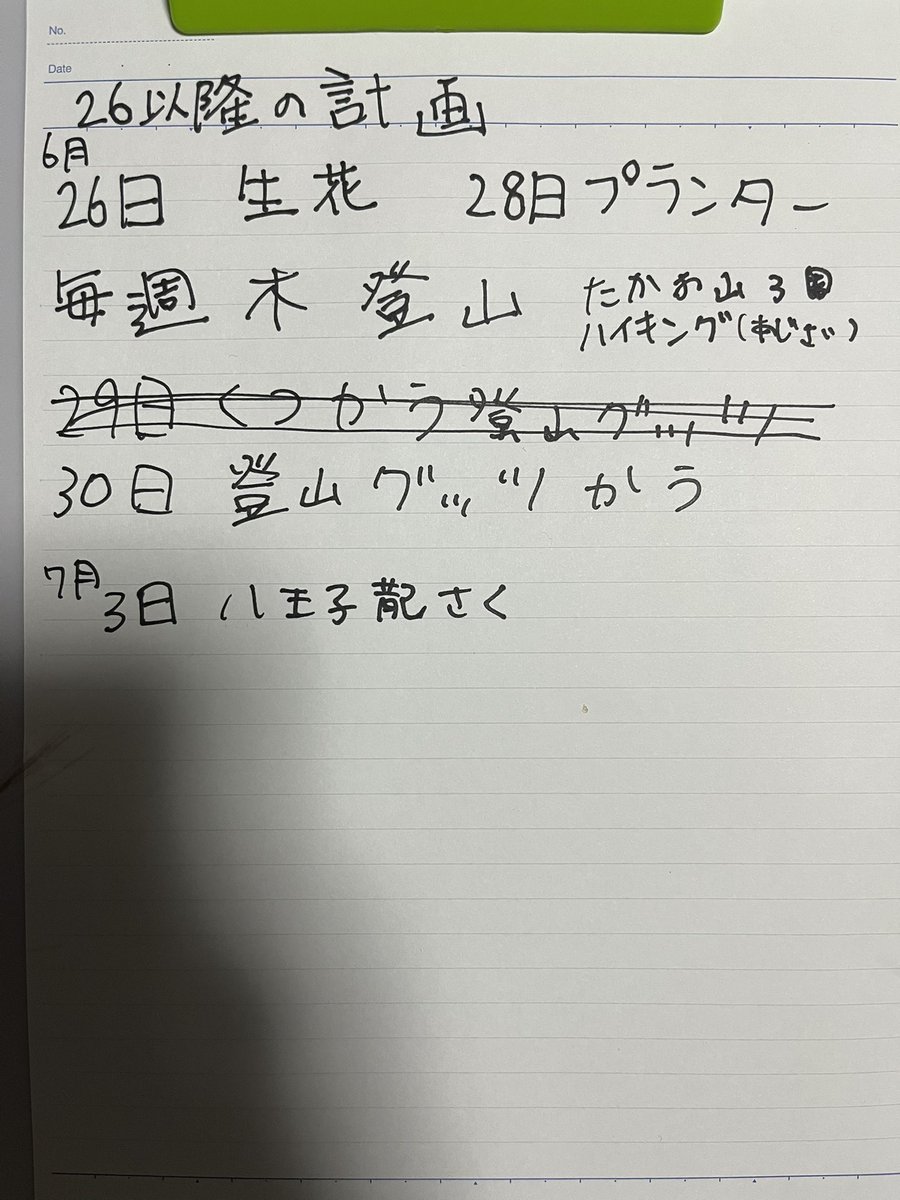 No.
Date
26以降の計画
6月
26日 生花 28日プランター
毎週 木 登山 たかお山3回
ハイキング(あじさい)
29日 くつかう登山グッツ
30日 登山グッツかう
7月
3日 八王子散さく